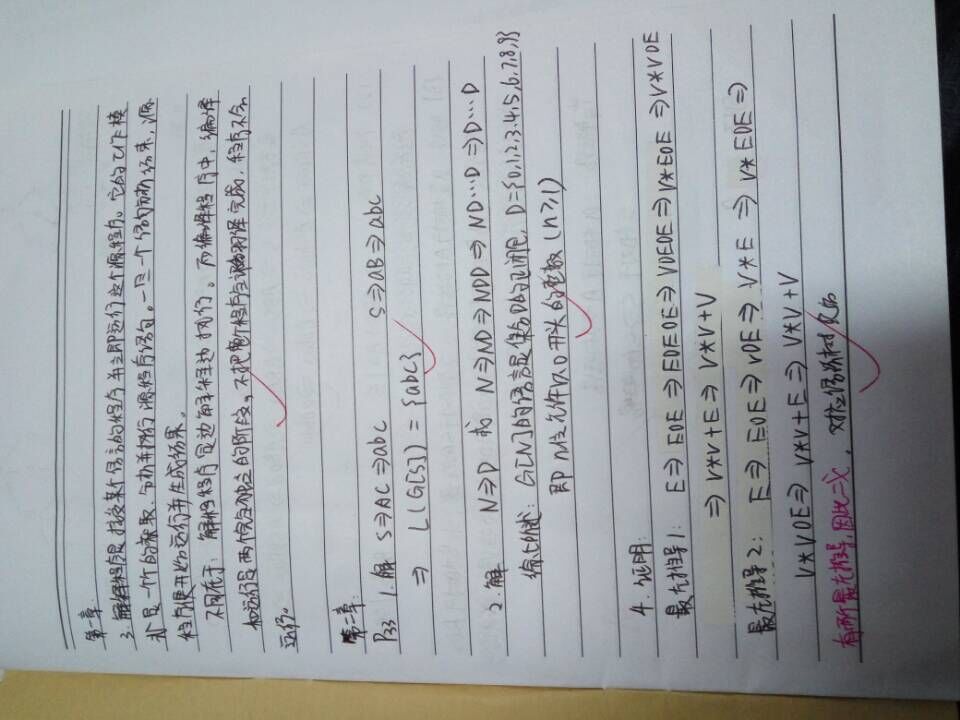 第一章
3. 解释程序是接受某个语言的程序并立即运行这个源程序。它的工作模
式是一个个的获取、分析并执行源程序语句。一旦一个语句分析结束，源
程序便开始运行并生成结果。
不同在于：解释程序是边解释边执行。而编译程序中，编译
和运行是两个完全独立的阶段。不把整个程序全部翻译完成，程序不会
运行。
第二章
P33 1. 解 S⇒AC⇒abc S⇒aB⇒abc
⇒ L(G[S]) = {abc}
2. 解 N⇒D 或 N⇒ND⇒NDD⇒ND…D⇒D…D
综上所述：G[N]的语言是集合D的正闭包，D={0,1,2,3,4,5,6,7,8,9}
即n位允许以0开头的整数（n≥1）
4. 证明：
最左推导1： E⇒EOE⇒EOEOE⇒VOEOE⇒V*EOE⇒V*VOE
⇒V*V+E⇒V*V+V
最左推导2： E⇒EOE⇒VOE⇒V*E⇒V*EOE⇒
V*VOE⇒V*V+E⇒V*V+V
有两个最左推导，因此二义，对应语法树